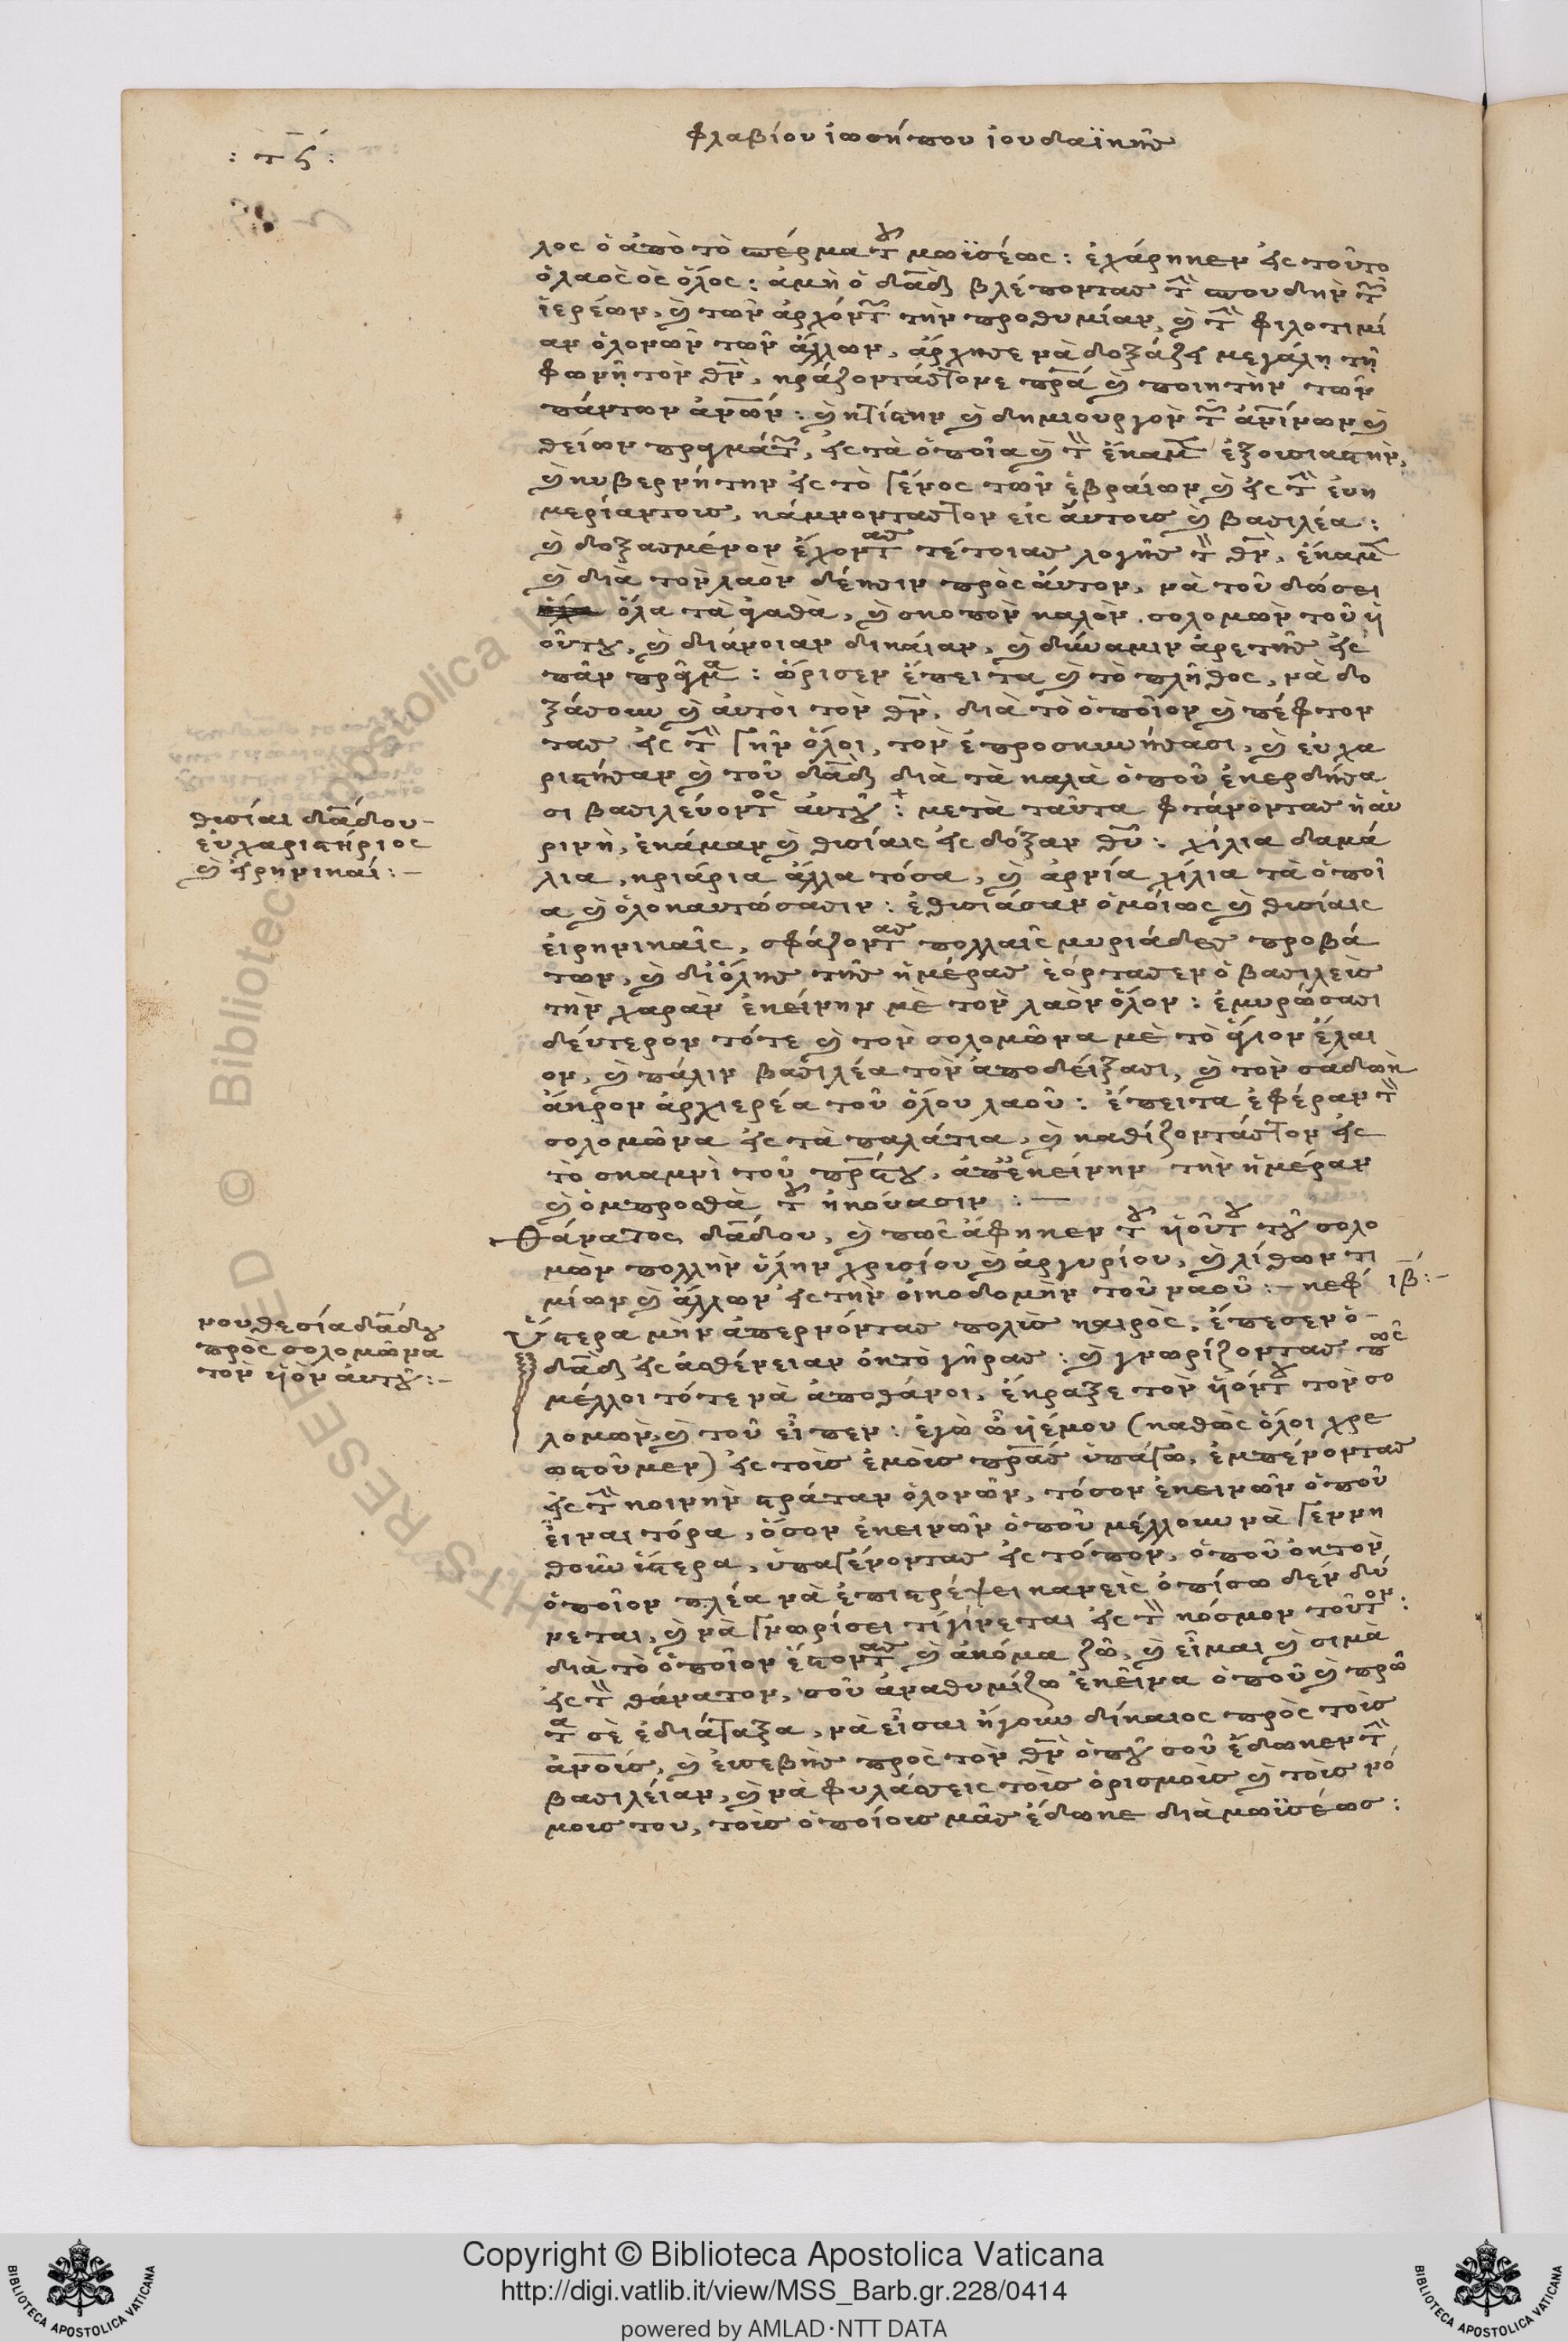 φλαβίου ἰωσήπου ἰουδαϊκῆς
: τϛ :
λος ὁ ἀπὸ τὸ σπέρμα τοῦ μωϊσέως : ἐχάρηκεν εἰς τοῦτο
ὁ λαὸς ὡς ὅλος : ἀμὴ ὁ δᾱδ βλέποντας τὴν σπουδὴν τῶν
ἱερέων, καὶ τῶν ἀρχόντων τὴν προθυμίαν, καὶ τὴν φιλοτιμί
αν ὁλονῶν τῶν ἄλλων, ἄρχησε νὰ δοξάζει μεγάλη τῇ
φωνῇ τὸν θν̄, κράζοντάς τονε πρ̄α καὶ ποιητὴν τῶν
πάντων ἀνῶν : καὶ κτίστην καὶ δημιουργὸν τῶν ἀνίνων καὶ
θείων πραγμάτων, εἰς τὰ ὁποῖα καὶ τὸν ἔκαμεν ἐξουσιαστὴν,
καὶ κυβερνήτην εἰς τὸ γένος τῶν ἑβραίων καὶ εἰς τὴν εὐη
μερίαν τους, κάμνοντας τον εἰς ἄυτους καὶ βασιλέα :
καὶ δοξασμένον ἔχοντας τέτοιας λογῆς τὸν θν̄, ἔκαμεν
καὶ διὰ τὸν λαὸν δέησιν πρὸς ἄυτον, νὰ τοῦ δώσει
ὅλα τὰ ἀγαθὰ, καὶ σκοπὸν καλὸν. σολομὼν τοῦ ὑ
οῦ του, καὶ διάνοιαν δικάιαν, καὶ δύναμιν ἀρετῆς εἰς
πᾶν πρᾶγμα : ὥρισεν ἔπειτα καὶ τὸ πλῆθος, νὰ δο
ξάσουν καὶ ἀυτὸι τὸν θν̄, διὰ τὸ ὁποῖον καὶ πέφτον
τας εἰς τὴν γῆν ὅλοι, τὸν ἐπροσκυνήσασι, καὶ ἐυχα
ριστῆσαν καὶ τοῦ δᾱδ διὰ τὰ καλὰ ὁποῦ ἐκερδήσα
σι βασιλεύοντος ἀυτοῦ : μετὰ ταῦτα φτάνοντας ἡ ἀυ
ρινὴ, ἐκάμαν καὶ θυσίαις εἰς δόξαν θῡ : χίλια δαμά
λια, κριάρια ἄλλα τόσα, καὶ ἀρνία χίλια τὰ ὁποῖ
α καὶ ὁλοκαυτώσασιν : ἐθυσιάσαν ὁμόιως καὶ θυσίαις
εἰρηνικαῖς, σφάζοντας πολλαῖς μυριάδες προβά
των, καὶ δι ὅλης τῆς ἡμέρας ἑόρτασεν ὁ βασιλεὺς
τὴν χαρὰν ἐκείνην μὲ τὸν λαὸν ὅλον : ἐμυρώσασι
δέυτερον τότε καὶ τὸν σολομῶνα μὲ τὸ ἅγιον ἔλαι
ον, καὶ πάλιν βασιλέα τὸν ἀποδείξασι, καὶ τὸν σαδὼκ
ἄκρον ἀρχιερέα τοῦ ὅλου λαοῦ : ἔπειτα ἐφέραν τὸν
σολομῶνα εἰς τὰ παλάτια, καὶ καθίζοντάς τον εἰς
τὸ σκαμνὶ τοῦ πρ̄ς του, ἀπ ἐκείνην τὴν ἡμέραν
καὶ ὀμπροσθὰ τοῦ ἠκούασιν : —
Θάνατος δᾱδου, καὶ πῶς ἄφηκεν τοῦ ὑοῦ του τοῦ σολο
μὼν πολλὴν ὕλην χρυσίου καὶ ἀργυρίου, καὶ λίθων τι
μίων καὶ ἄλλων εἰς τὴν ὀικοδομὴν τοῦ ναοῦ : — κεφ ιβ : —
Ὕστερα μὴν ἀπερνόντας πολὺς καιρὸς, ἔπεσεν ὁ
δᾱδ εἰς ἀσθένειαν ὀκτὸ γῆρας : καὶ γνωρίζοντας πῶς
μέλλοι τότε νὰ ἀποθάνοι, ἔκραξε τὸν ὑόν του τὸν σο
λομὼν, καὶ τοῦ εἶπεν : ἐγὼ ὦ ὑὲ μου (καθὼς ὅλοι χρε
ωστοῦμεν) εἰς τοὺς ἐμοὺς πρ̄ας ὑπάγω, ἐμπένοντας
εἰς τὴν κοινὴν στράταν ὁλονῶν, τόσον ἐκεινῶν ὁποῦ
εἶναι τόρα, ὅσον ἐκεινῶν ὁποῦ μέλλουν νὰ γεννη
θοῦν ὕστερα, ὑπαγένοντας εἰς τόπον, ὁποῦ ὀκ τὸν
ὁποῖον πλέα νὰ ἐπιστρέψει κανεὶς ὀπίσω δὲν δύ
νεται, καὶ νὰ γνωρίσει τί γίνεται εἰς τὸν κόσμον τοῦτον :
διὰ τὸ ὁποῖον ἔστοντας καὶ ἀκόμα ζῶ, καὶ εἶμαι καὶ σιμὰ
εἰς τὸν θάνατον, σοῦ ἀναθυμίζω ἐκεῖνα ὁποῦ καὶ πρῶ
τα σὲ ἐδιάταξα, νὰ εἶσαι ἤγουν δίκαιος πρὸς τοὺς
ἀνοὺς, καὶ ἐυσεβὴς πρὸς τὸν θν̄ ὁποῦ σοῦ ἔδωκεν τὴν
βασιλείαν, καὶ νὰ φυλάσσεις τοὺς ὁρισμοὺς καὶ τοὺς νό
μους του, τοὺς ὁποίους μᾶς ἔδωκε διὰ μωϊσέως :
θυσίαι δᾱδου –
ἐυχαριστήριος
καὶ εἰρηνικαί : –
νουθεσία δᾱδου
πρὸς σολομῶνα
τὸν ὑὸν ἀυτοῦ : –
Copyright © Biblioteca Apostolica Vaticana
http://digi.vatlib.it/view/MSS_Barb.gr.228/0414
powered by AMLAD·NTT DATA
BIBLIOTECA APOSTOLICA VATICANA
BIBLIOTECA APOSTOLICA VATICANA